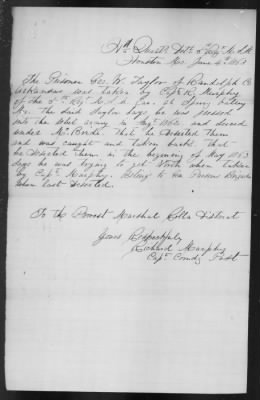 Hd Qurs Det 5th Regt M.S.M.
Houston Mo. June 4th 1863
The Prisoner Geo. W. Taylor of Randolph Co
Arkansas was taken by Capt R. Murphy
of the 5th Regt M.S.M. Cav. at Spring Valley
Mo. the said Taylor says he was pressed
into the Rebel army in May 1862 and served
under McBride that he deserted them
and was caught and taken back. that
he deserted them in the begining of May 1863
says he was trying to get North when taken
by Capt. Murphy. Belong to the Parsons Brigade
when last deserted.
To the Provost Marshal Rolla District
Yours Respectfuly
Richard Murphy
Capt Comdg Post